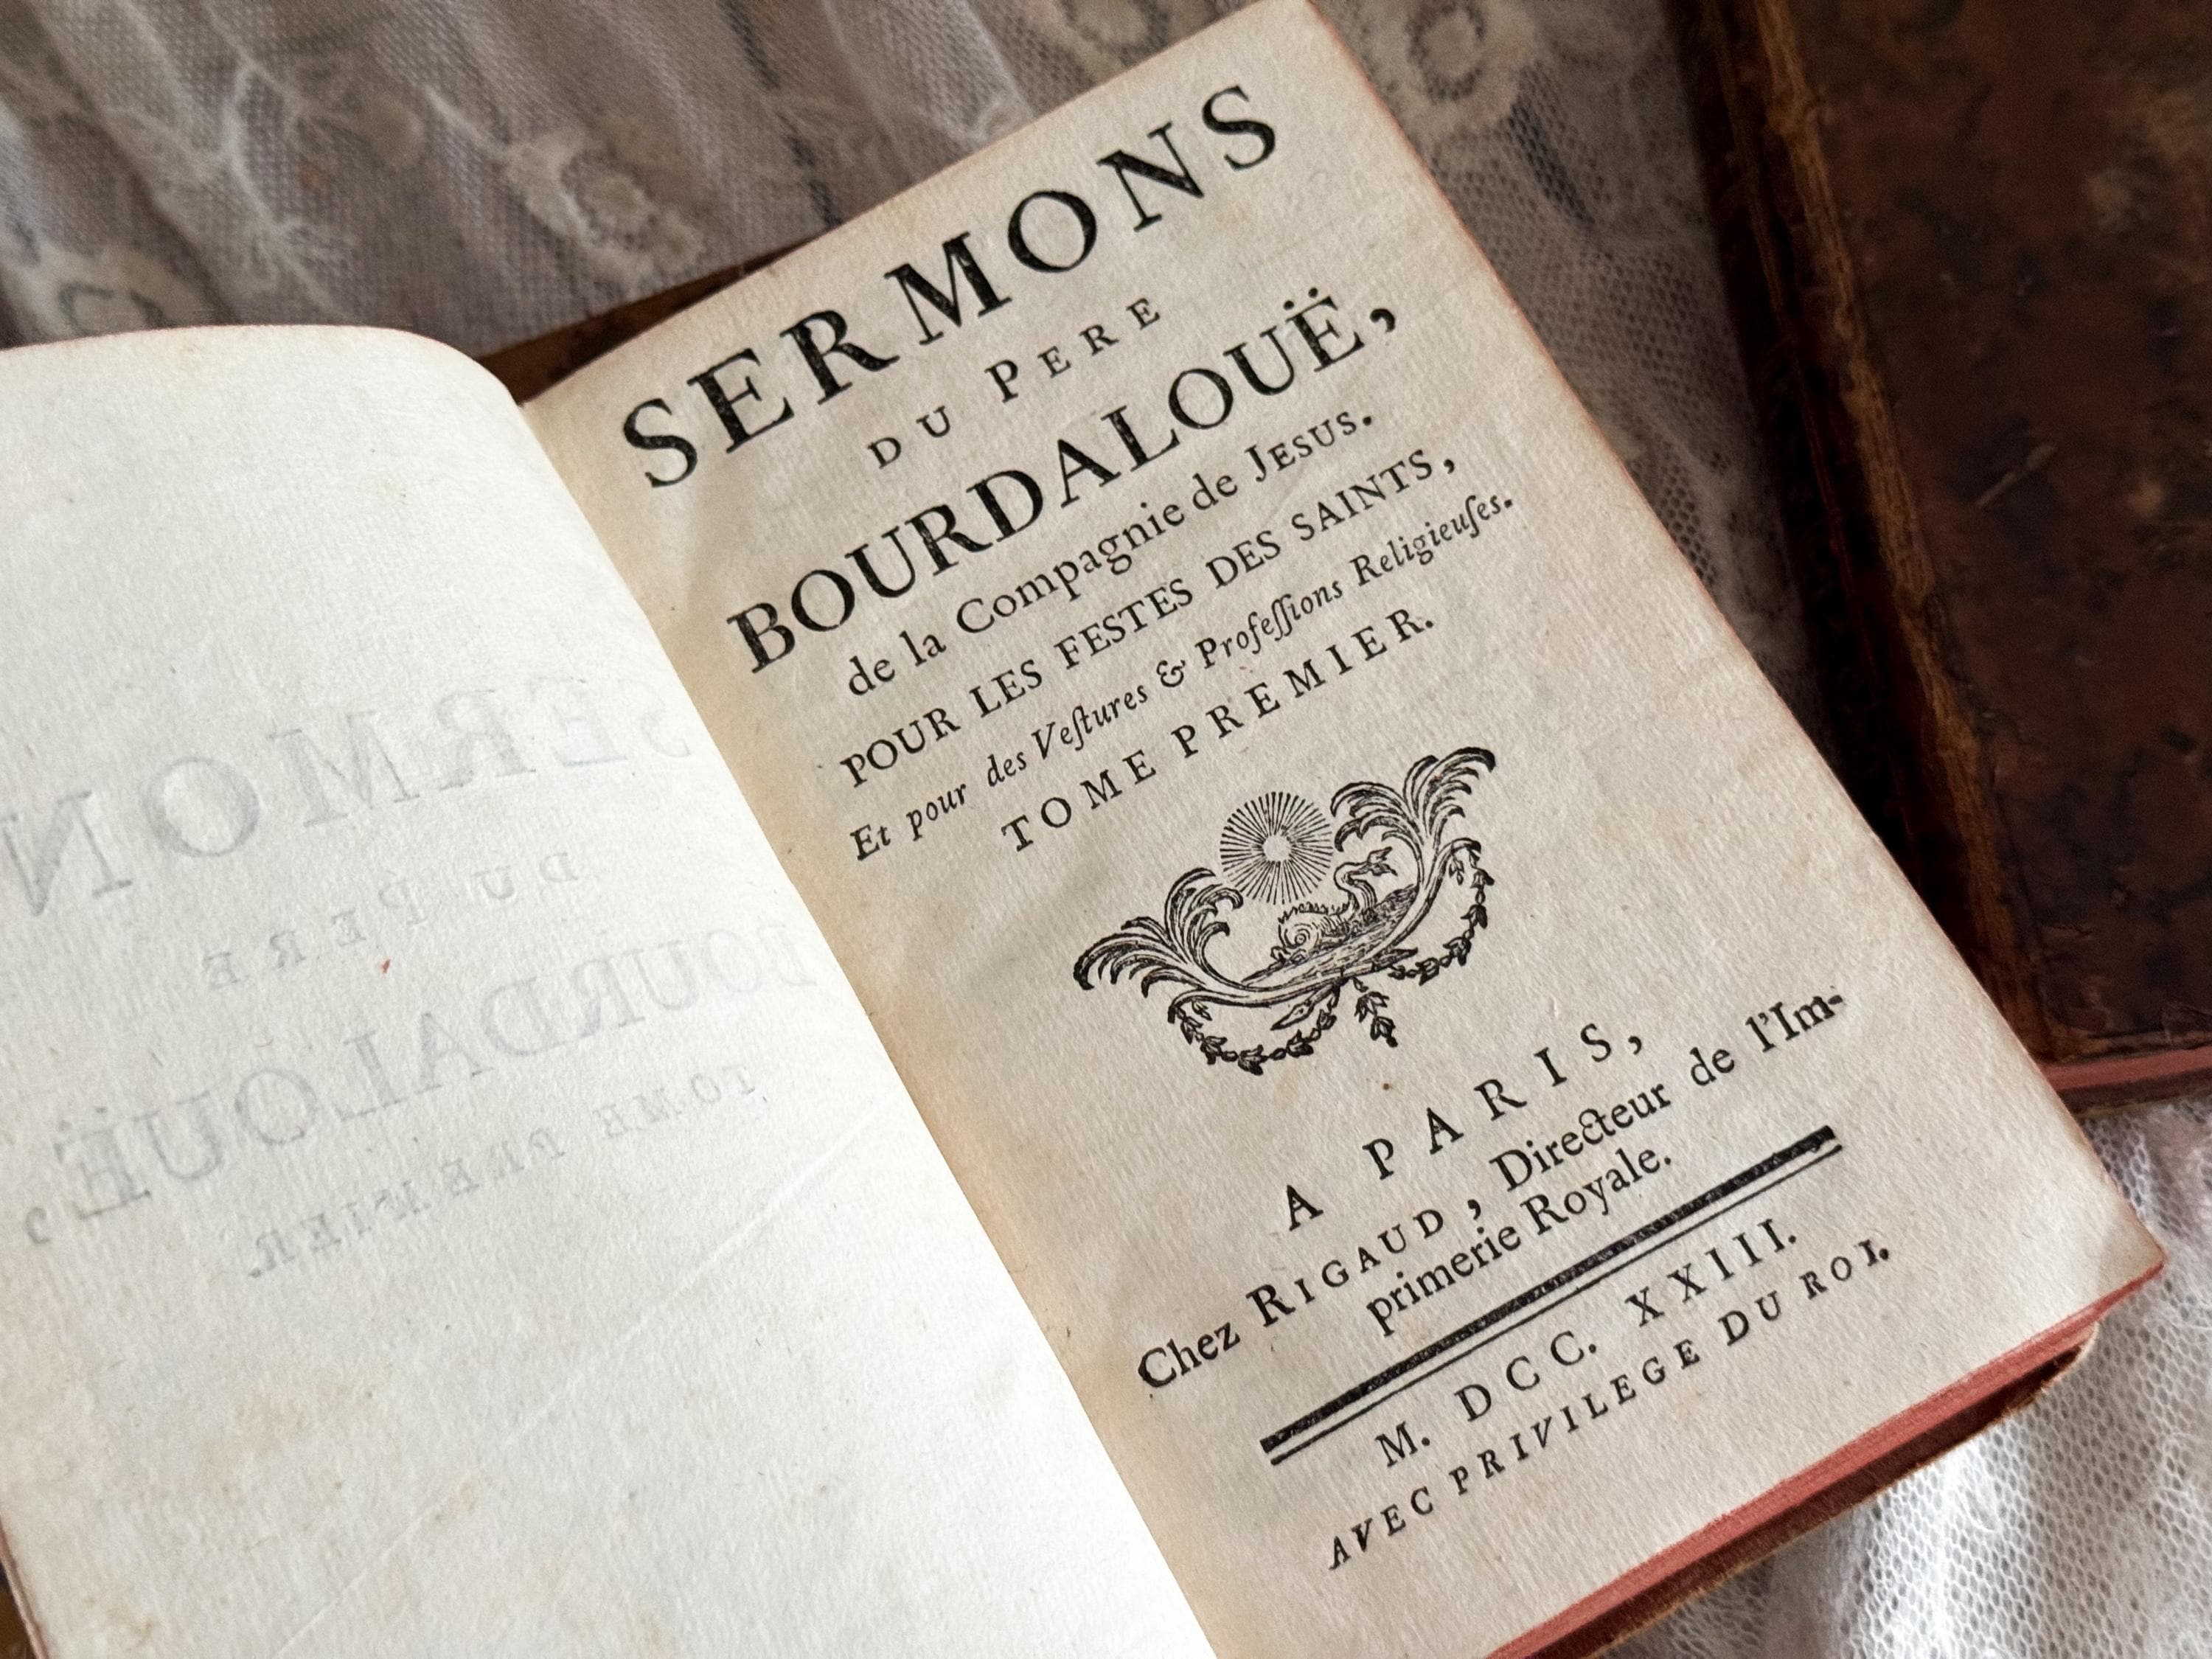 SERMON
DU PERE
BOURDALOUË,
TOME PREMIER.
SERMONS
DU PERE
BOURDALOUË,
de la Compagnie de JESUS.
POUR LES FESTES DES SAINTS,
Et pour des Veſtures & Profeſſions Religieuſes.
TOME PREMIER.
A PARIS,
Chez RIGAUD, Directeur de l'Im-
primerie Royale.
M. DCC. XXIII.
AVEC PRIVILEGE DU ROI.